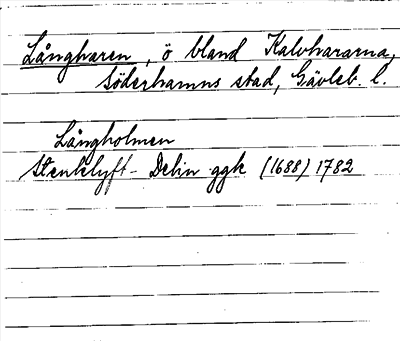 Långharen, ö bland Kalvhararna,
Söderhamns stad, Gävleb. l.
Långholmen
Stenklyft - Delin ggk (1688) 1782